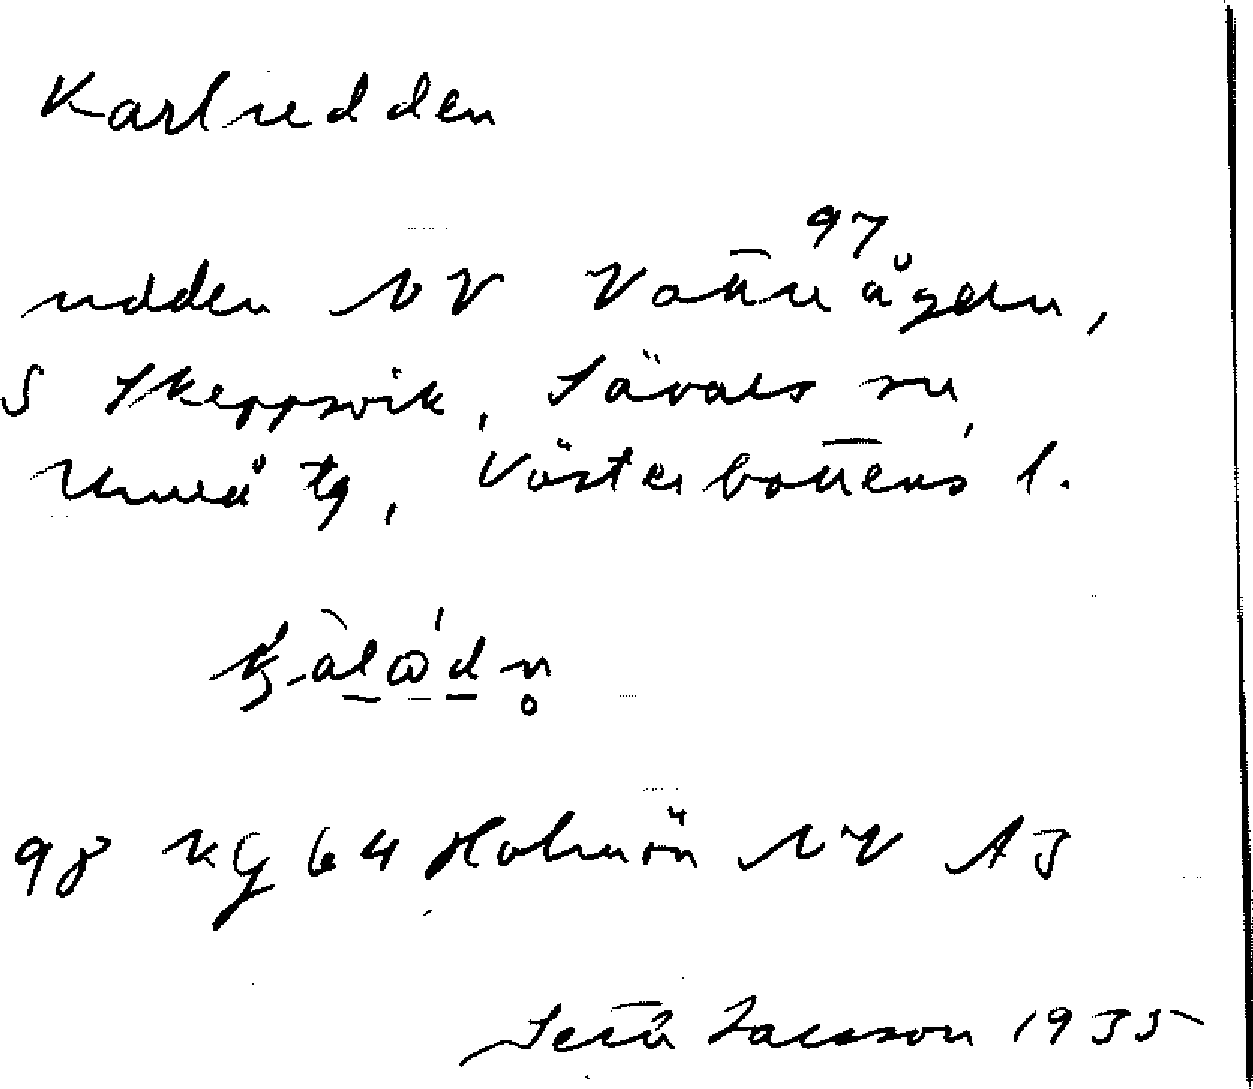 Karludden
97
udden NV Vattuågern,
S Skeppsvik, Sävars sn,
Umeå tg, Västerbottens l.
98 KG 64 Holmön NV A3
Seth Jacsson 1935